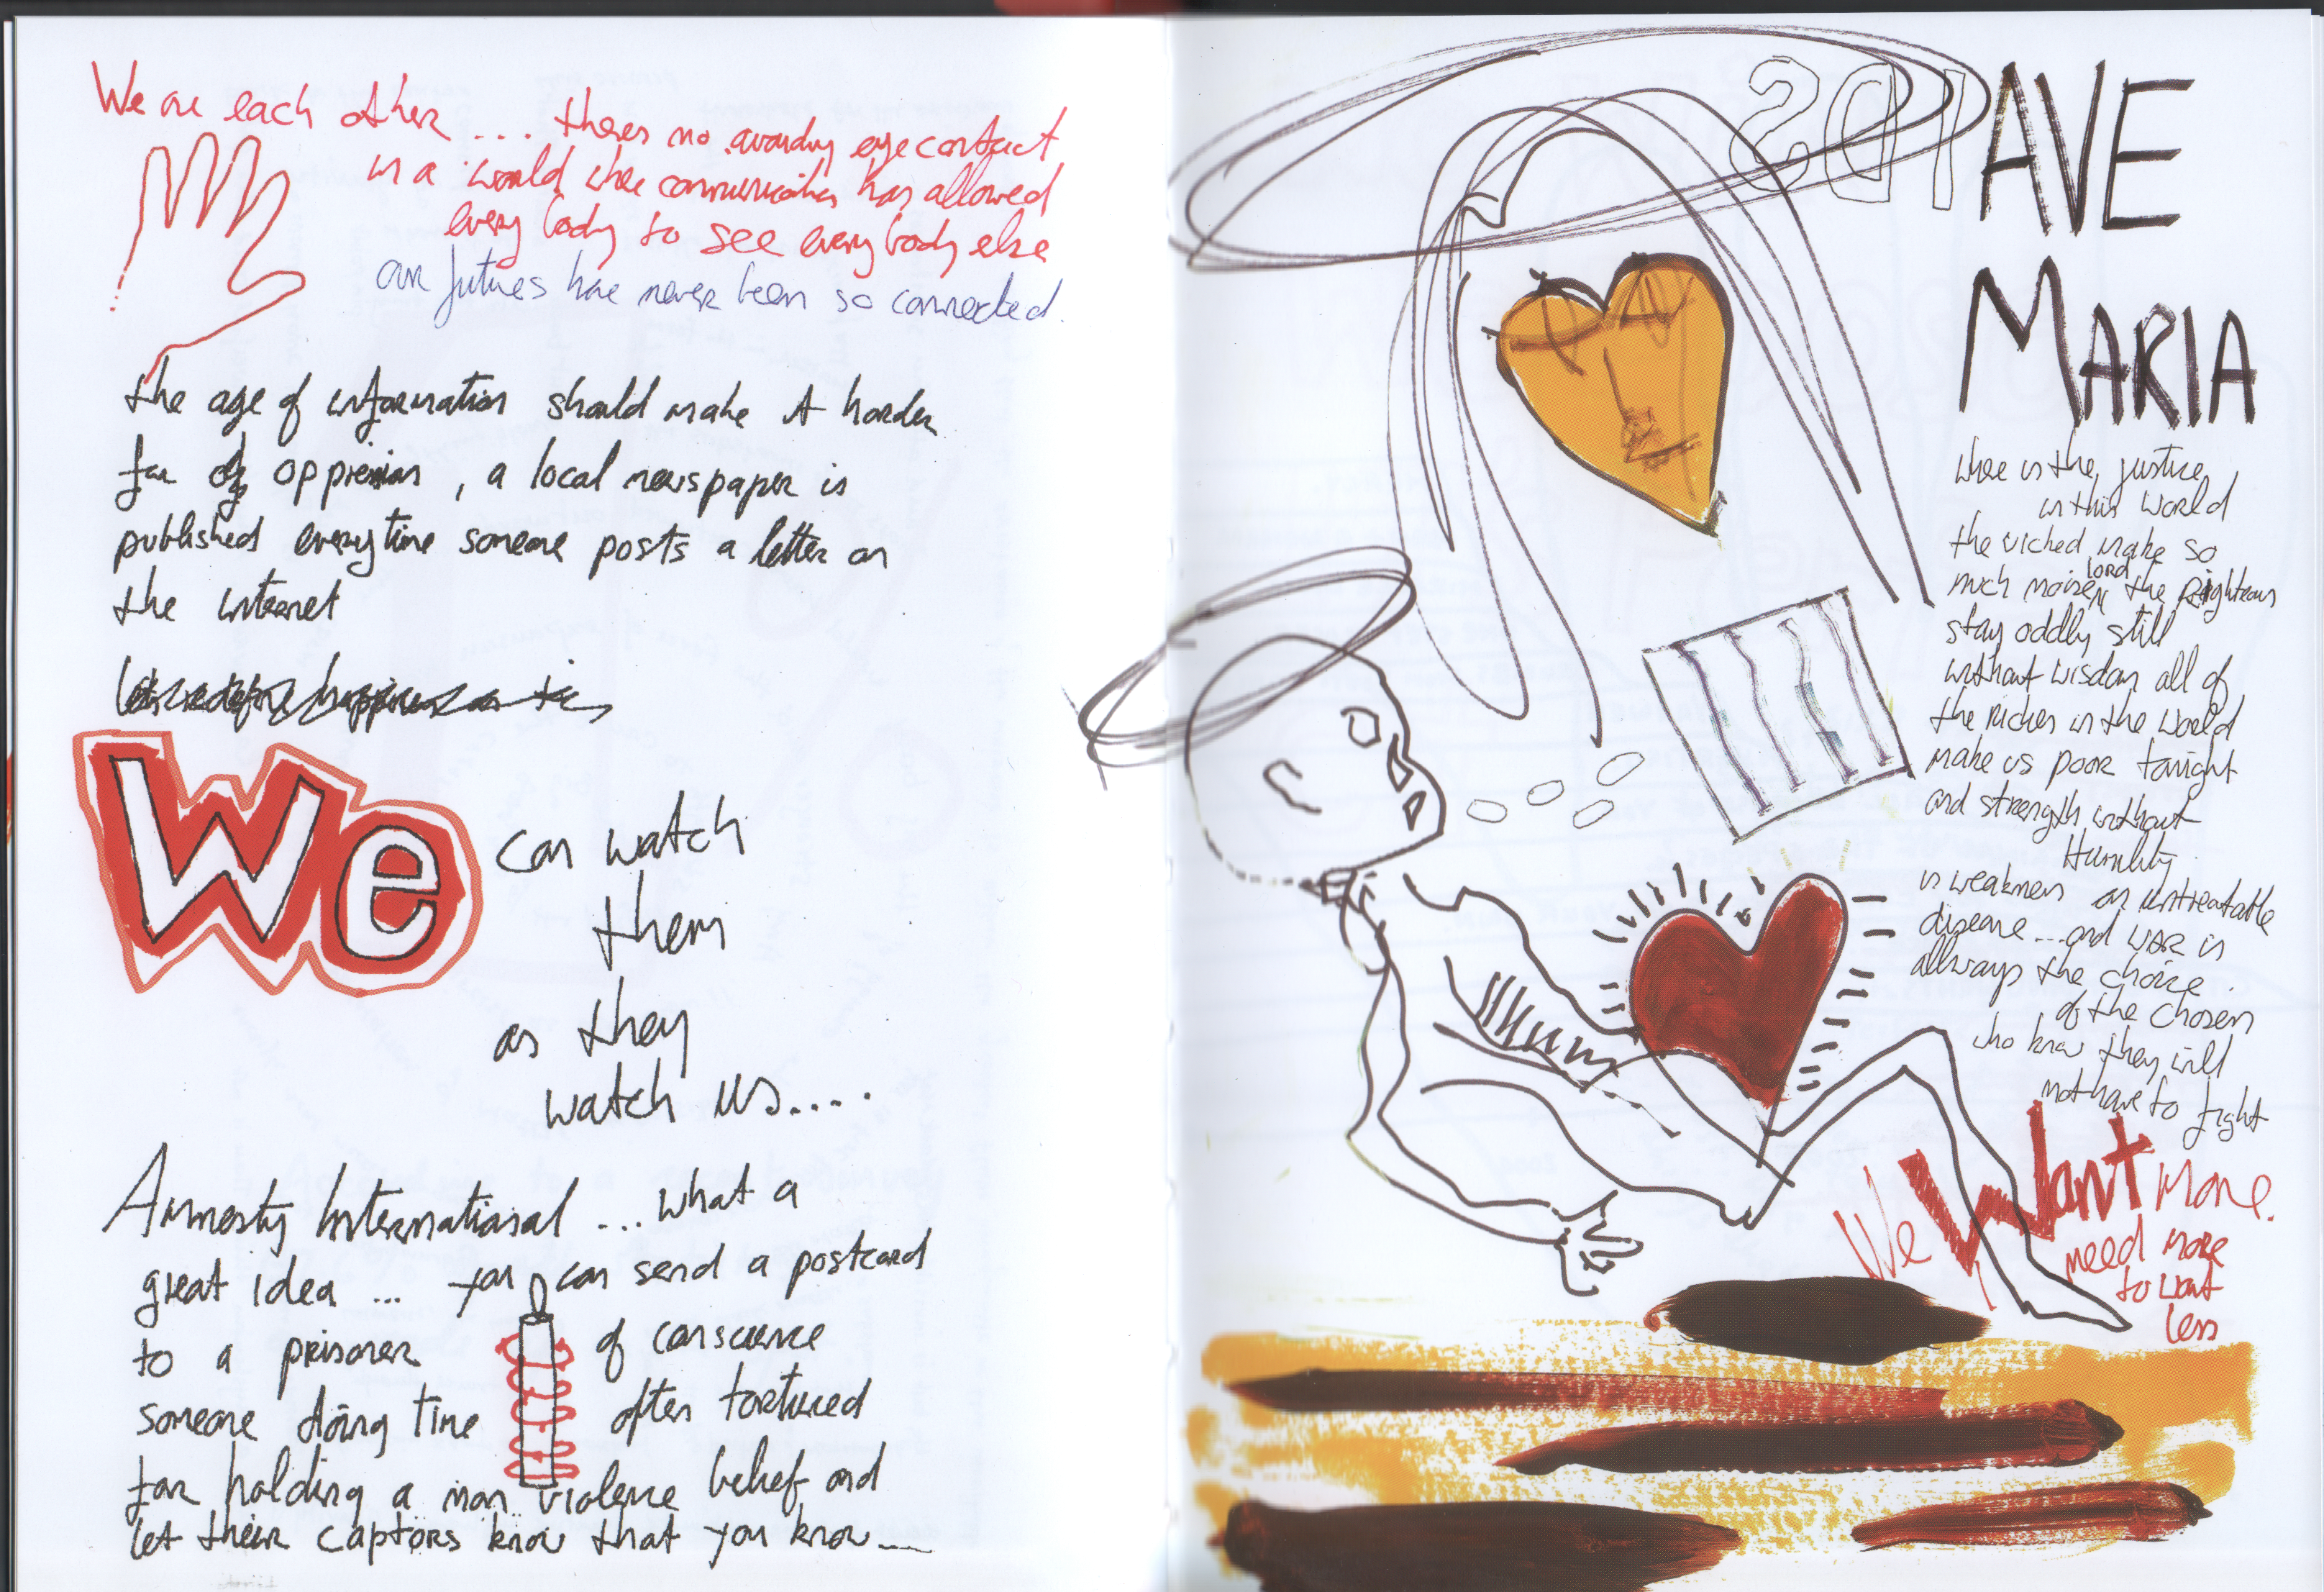 We are each other ... theres no avoiding eye contact
in a world where communication has allowed
every body to see every body else
our futures have never been so connected.
the age of information should make it harder
for of oppression, a local newspaper is
published everytime someone posts a letter on
the internet
We
can watch
them
as they
watch us.....
Amnesty International ... what a
great idea ... you can send a postcard
to a prisoner of conscience
someone doing time often tortured
for holding a non violence belief and
let their captors know that you know....
AVE
MARIA
where is the justice
in this world
the wicked make so
much noise lord the Righteous
stay oddly still
without wisdom all of
the riches in the world
make us poor tonight
and strength without
Humility
is weakness an untreatable
disease ... and WAR is
allways the choice
of the chosen
who know they will
not have to fight
We Want More.
need more
to want
less